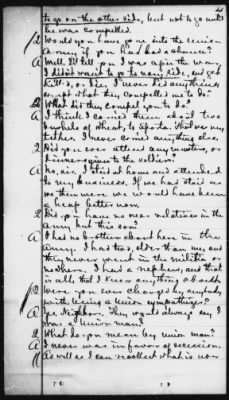 4
to go on the other side, but not to go until
he was compelled.
Q Would you have gone into the Union
Army, if you had had a chance?
A Well, I'll tell you I was agin the war,
I didn't want to go to any side, and get
kill'd, or die, I never did anything
except what they compelled me to do.
Q What did they compel you to do?
A I think I carried them about two
bushels of wheat, to Sparta. That was my
tithe. I never carried anything else.
Q Did you ever attend any musters, or
give to the soldiers?
A No, sir, I staid at home and attended
to my business. If we had staid as
we then were we would have been
a heap better now.
Q Did you have no near relatives in the
army but this son?
A I had no brother about here in the
army. I had two, older than me, and
they never went in the militia or
nowhere. I had a nephew, and that
is all, that I know anything about.
Q Were you ever charged by anybody
with being a Union sympathizer?
A Yes Neighbors. They would always say I
was a Union man.
Q What do you mean by Union man?
A I never was in favor of secession.
As well as I can recollect what is now